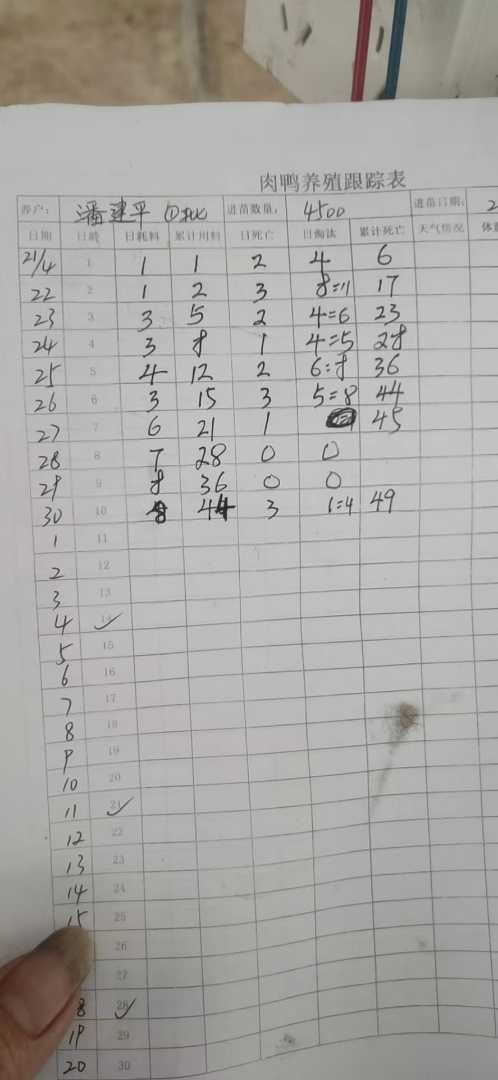 肉鸭养殖跟踪表
养户: 潘建平 进苗数量: 4500 进苗日期: 2
日期 日龄 日耗料 累计用料 日死亡 日淘汰 累计死亡 天气情况 体重
21/4 1 1 1 2 4 6
22 2 1 2 3 8=11 17
23 3 3 5 2 4=6 23
24 4 3 8 1 4=5 28
25 5 4 12 2 6=8 36
26 6 3 15 3 5=8 44
27 7 6 21 1 45
28 8 7 28 0 0
29 9 8 36 0 0
30 10 8 44 3 1=4 49
1 11
2 12
3 13
4 14 ✓
5 15
6 16
7 17
8 18
9 19
10 20
11 21 ✓
12 22
13 23
14 24
15 25
26
27
8 28 ✓
19 29
20 30